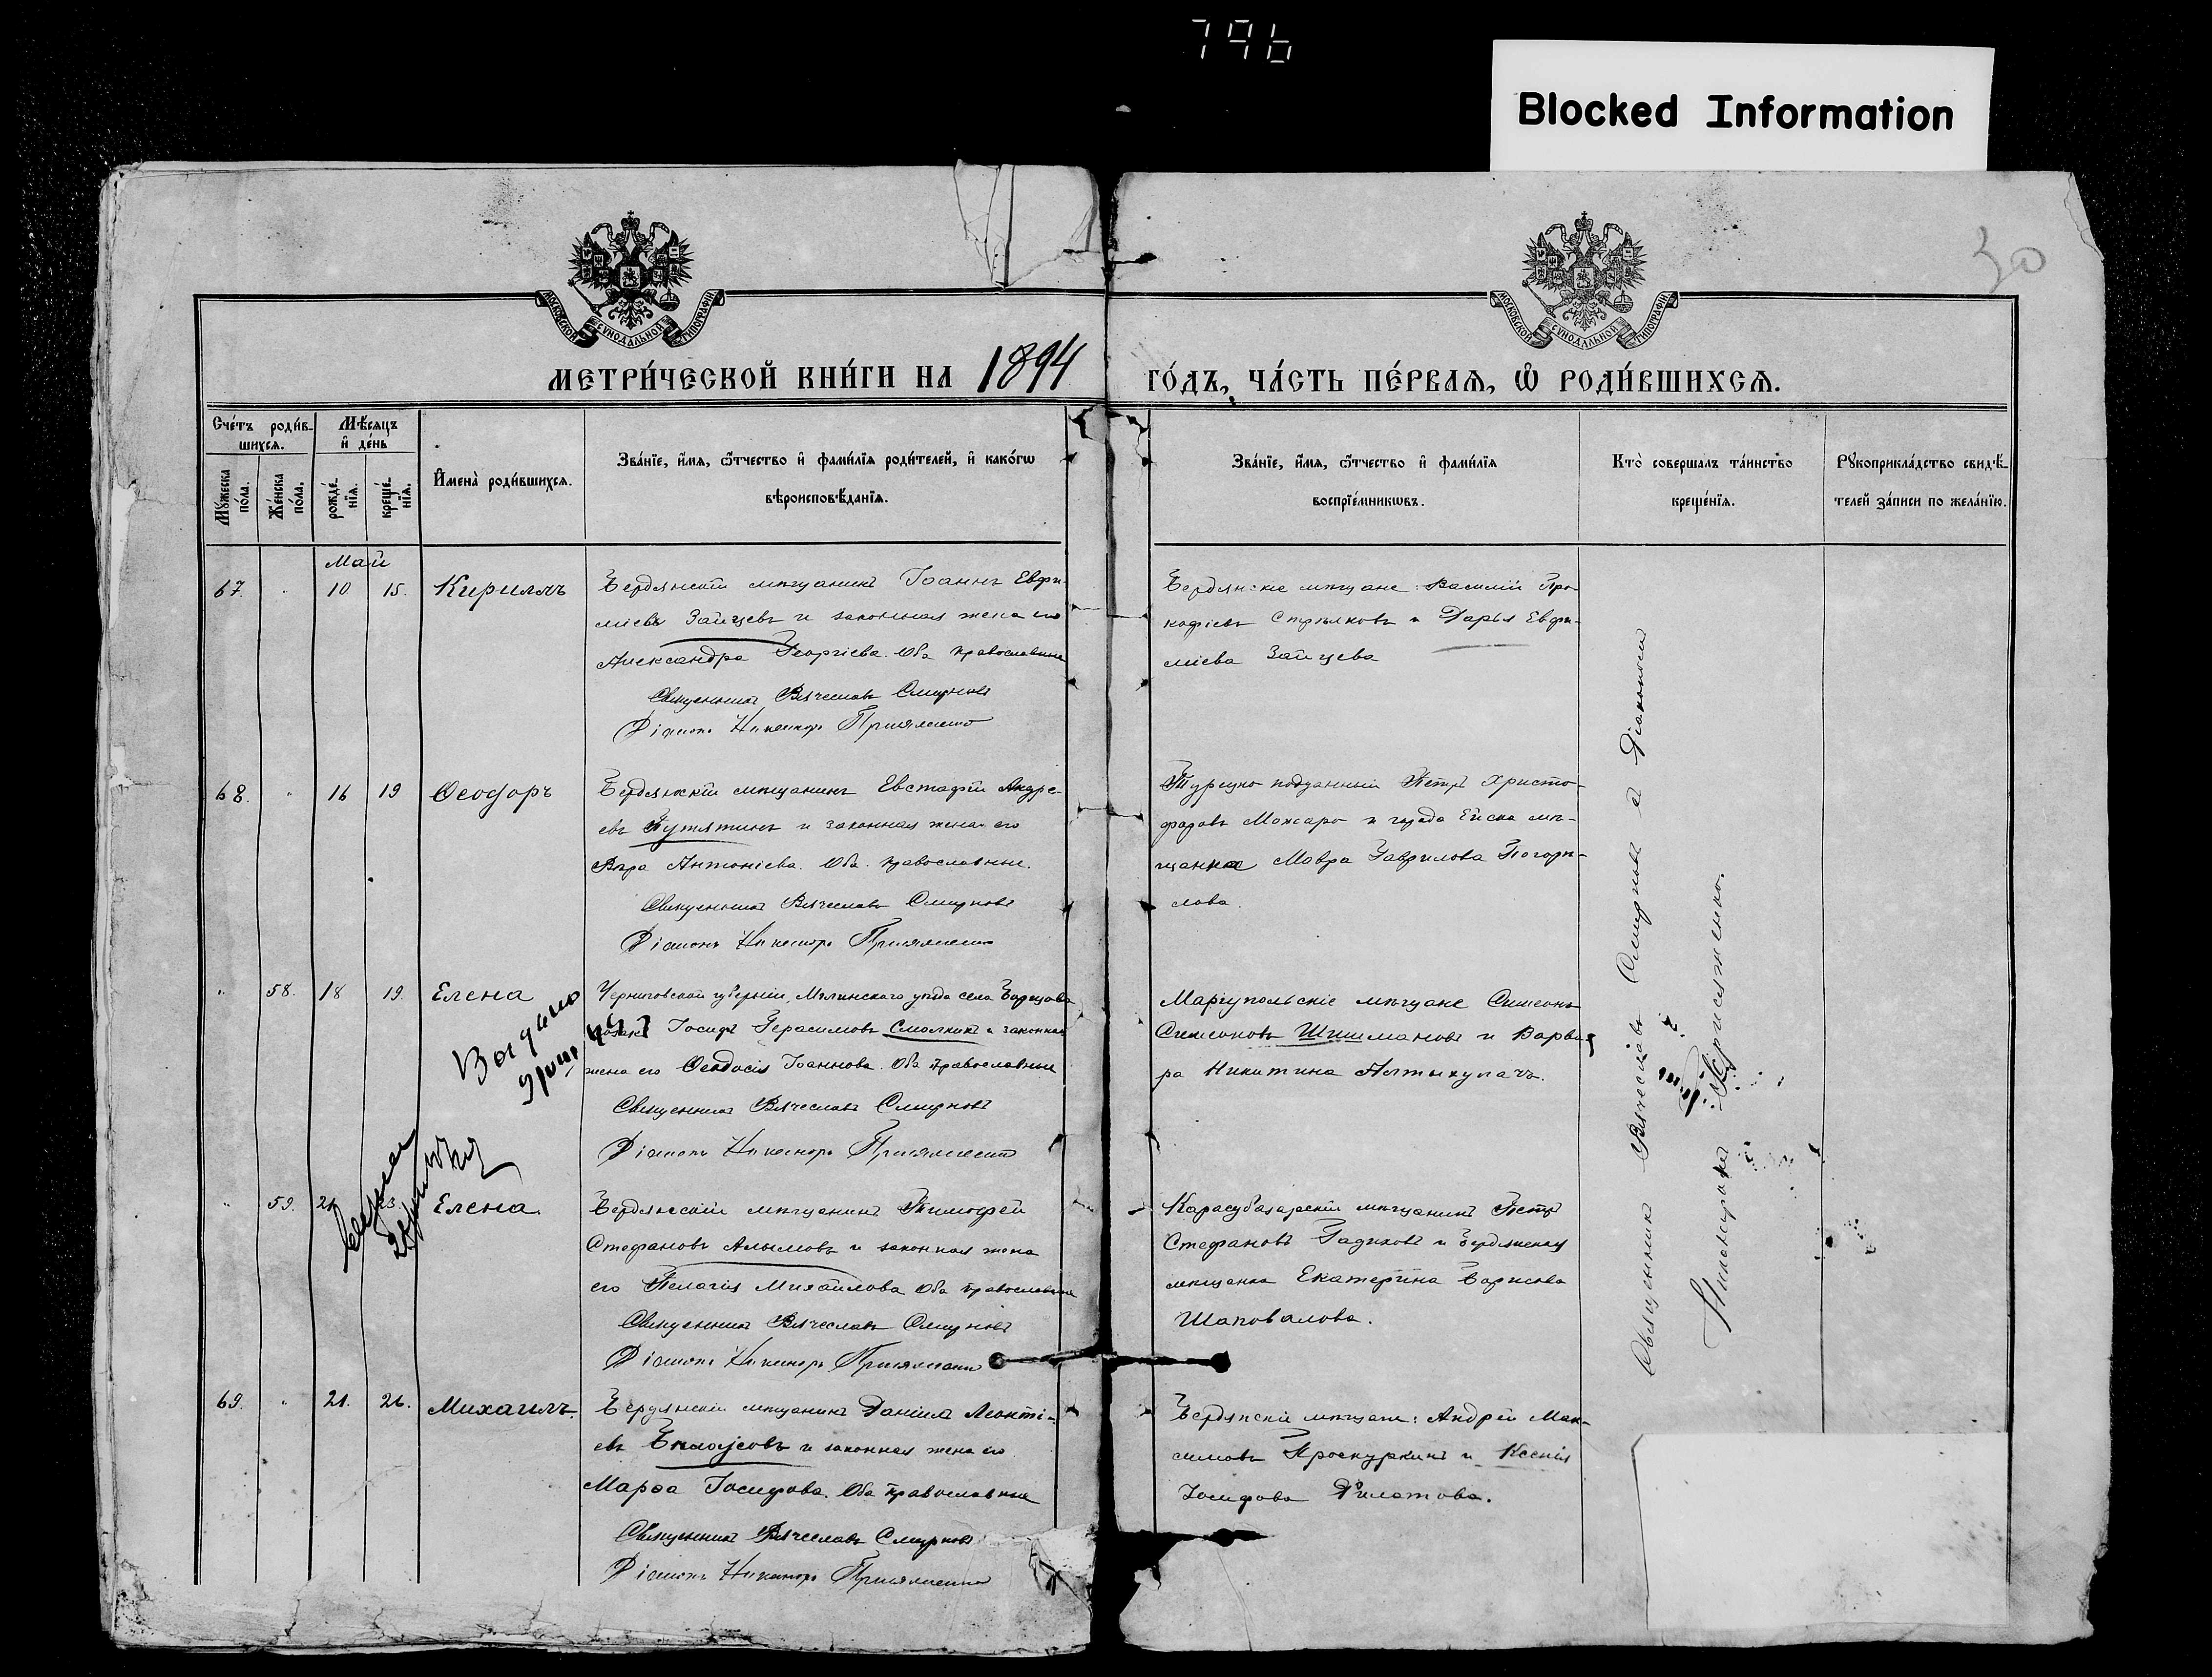 796
Blocked Information
30
МОСКОВСКОЙ СѴНОДАЛЬНОЙ ТИПОГРАФІИ
МОСКОВСКОЙ СѴНОДАЛЬНОЙ ТИПОГРАФІИ
МЕТРИ́ЧЕСКОЙ КНИ́ГИ НА 1894 ГО́ДЪ, ЧА́СТЬ ПЕ́РВАѦ, Ѡ҆ РОДИ́ВШИХСѦ.
Сче́тъ роди́в-
шихсѧ.
Мѣ́сѧцъ
и҆ де́нь
Мꙋ́жеска по́ла.
Же́нска по́ла.
рожде́-
нїѧ.
креще́-
нїѧ.
И҆мена̀ роди́вшихсѧ.
Зва́нїе, и҆́мѧ, ѻ҆́тчество и҆ фами́лїѧ роди́телей, и҆ како́гѡ
вѣроисповѣ́данїѧ.
Зва́нїе, и҆́мѧ, ѻ҆́тчество и҆ фами́лїѧ
воспрїе́мникѡвъ.
Кто̀ соверша́лъ та́инство
креще́нїѧ.
Рꙋкоприкла́дство свидѣ́-
телей за́писи по жела́нїю.
Май
67. " 10 15. Кириллъ
Бердянскій мѣщанинъ Іоаннъ Евфи-
міевъ Зайцевъ и законная жена его
Александра Георгіева. Оба православные
Священникъ Вячеславъ Смирновъ
Діаконъ Никаноръ Присяженко
Бердянскіе мѣщане: Василій Про-
кофіевъ и Дарья Евфи-
міева Зайцева
68. " 16 19 Ѳеодоръ
Бердянскій мѣщанинъ Евстафій Андре-
евъ Путятинъ и законная жена его
Вѣра Антоніева. Оба православные.
Священникъ Вячеславъ Смирновъ
Діаконъ Никаноръ Присяженко
Турецко подданный Петръ Христо-
форовъ Мокаро и города Ейска мѣ-
щанка Мавра Гаврилова Погорѣ-
лова.
" 58. 18 19. Елена
Черниговской губерніи, Мглинскаго уѣзда села
козакъ Іосифъ Герасимовъ Смолкинъ и законная
жена его Ѳеодосія Іоаннова. Оба православные
Священникъ Вячеславъ Смирновъ
Діаконъ Никаноръ Присяженко
Маріупольскіе мѣщане Симеонъ
Симеоновъ Шишмановъ и Варва-
ра Никитина
" 59. 21 23 Елена.
Бердянскій мѣщанинъ Тимофей
Стефановъ Алымовъ и законная жена
его Пелагія Михайлова Оба православные
Священникъ Вячеславъ Смирновъ
Діаконъ Никаноръ Присяженко
Карасубазарскій мѣщанинъ Петръ
Стефановъ Гадиковъ и Бердянская
мѣщанка Екатерина Борисова
Шаповалова.
69. " 21. 26. Михаилъ.
Бердянскій мѣщанинъ Даніилъ Леонті-
евъ Бѣлоусовъ и законная жена его
Марѳа Іосифова. Оба православные
Священникъ Вячеславъ Смирновъ
Діаконъ Никаноръ Присяженко
Бердянскіе мѣщане: Андрей Мак-
симовъ Проскуркинъ и Ксенія
Іосифова Филатова.
Священникъ Вячеславъ Смирновъ и Діаконъ
Никаноръ Присяженко.